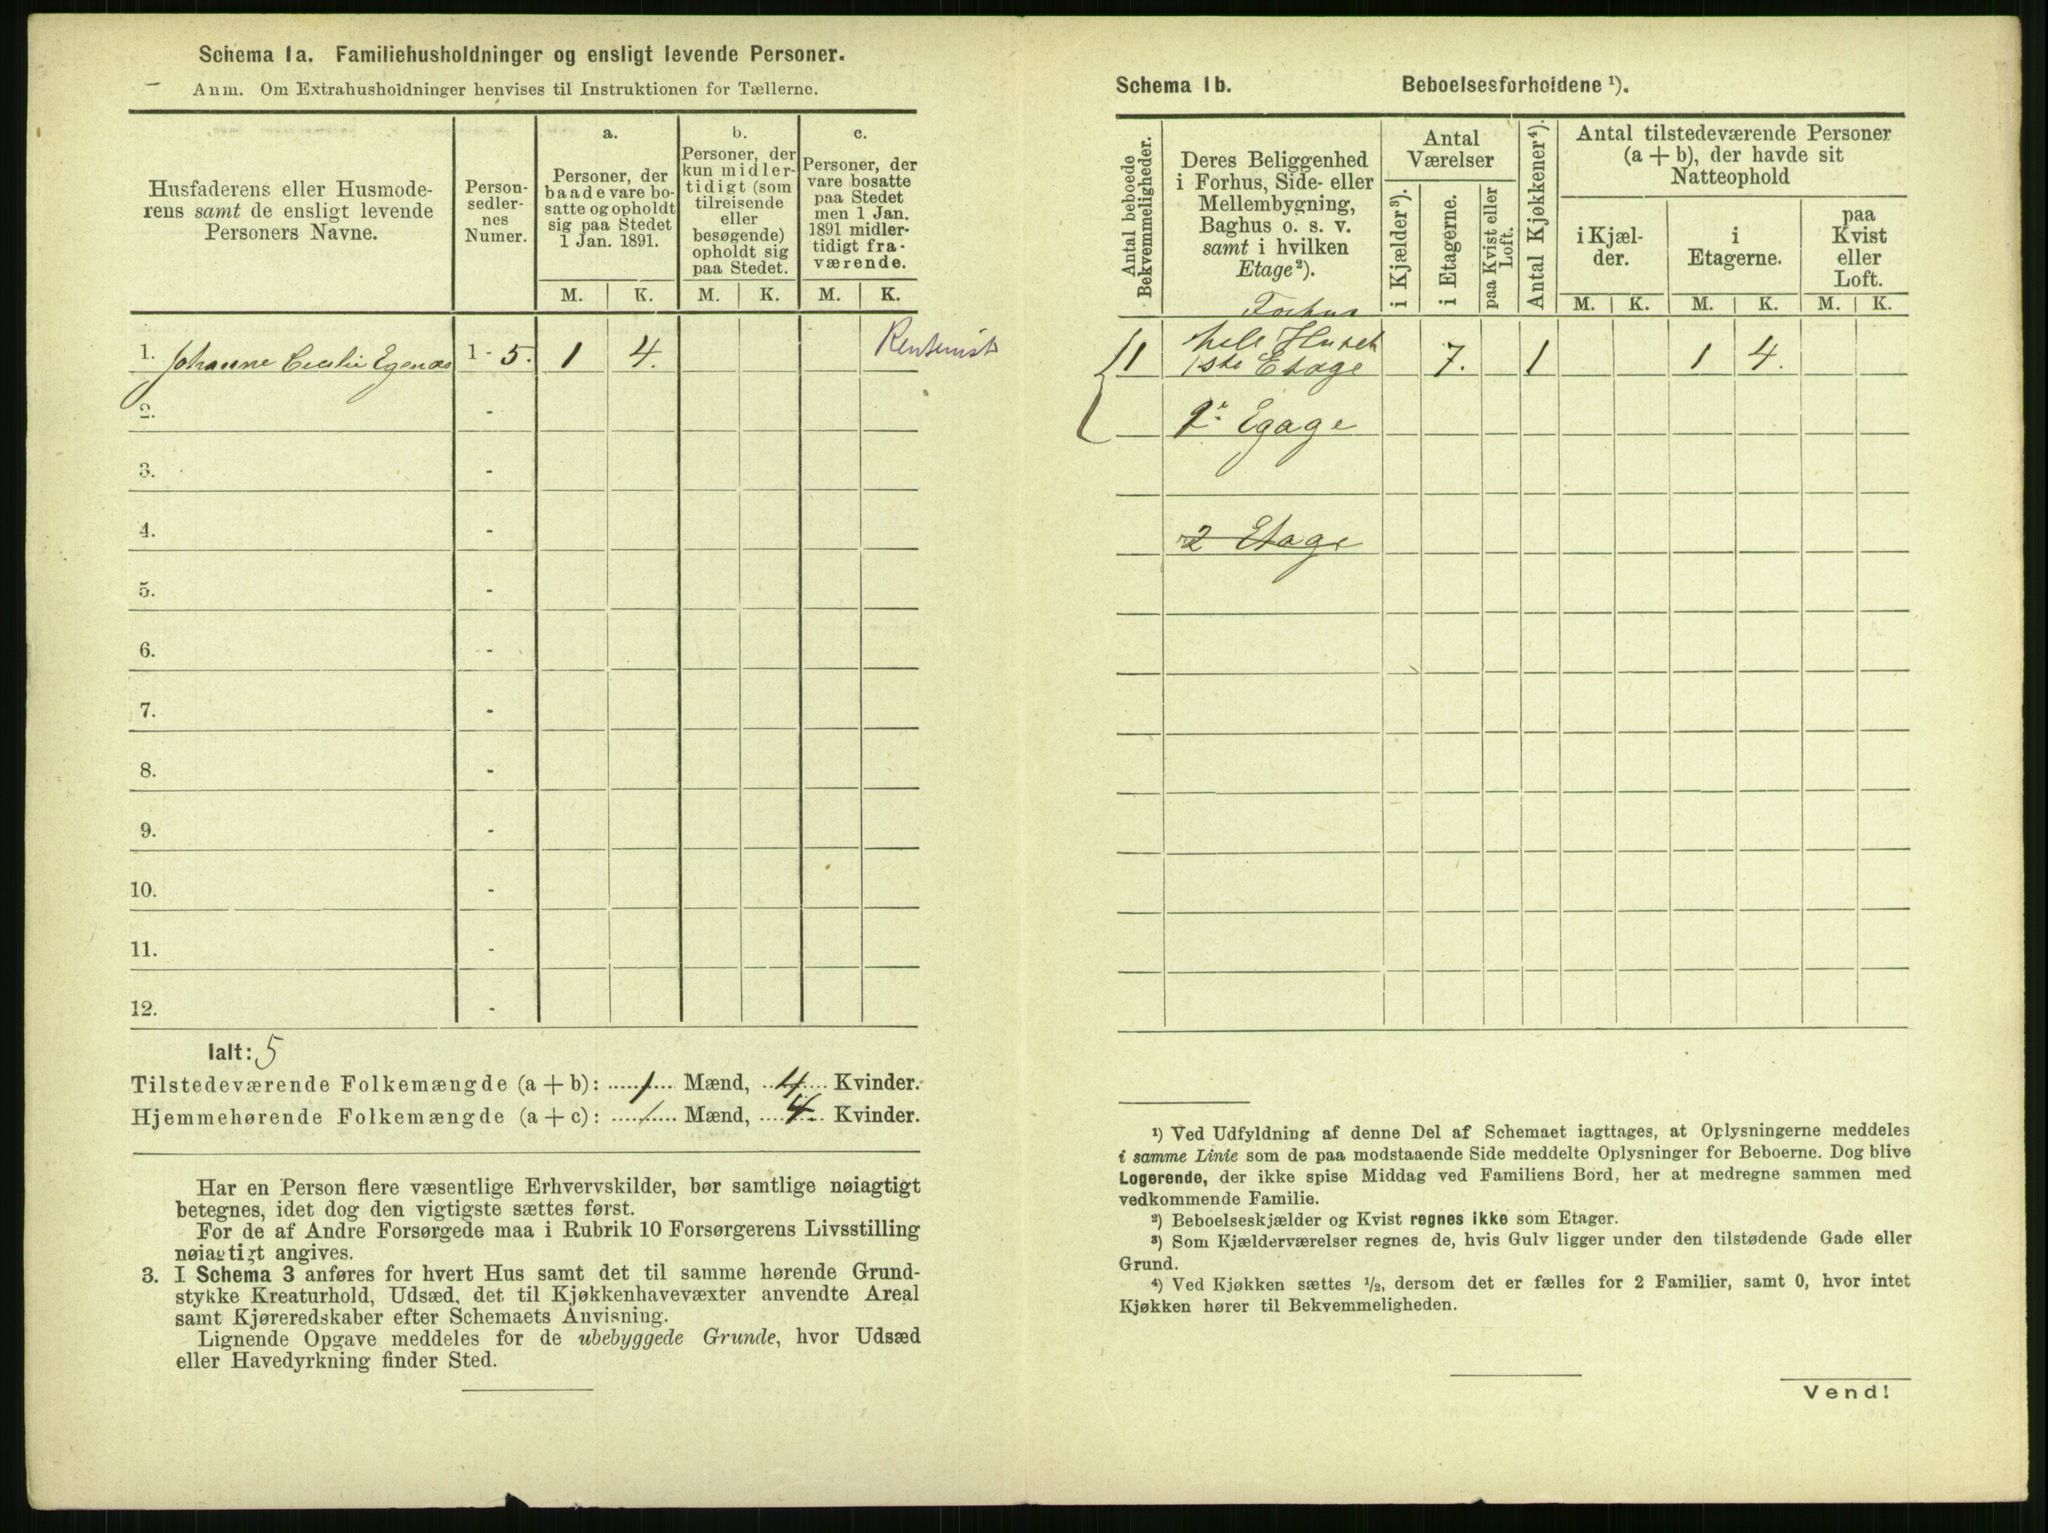 Schema 1a. Familiehusholdninger og ensligt levende Personer.
Anm. Om Extrahusholdninger henvises til Instruktionen for Tællerne.
Husfaderens eller Husmode-
rens samt de ensligt levende
Personers Navne.
Person-
sedler-
nes
Numer.
a.
Personer, der
baade vare bo-
satte og opholdt
sig paa Stedet
1 Jan. 1891.
b.
Personer, der
kun midler-
tidigt (som
tilreisende
eller
besøgende)
opholdt sig
paa Stedet.
c.
Personer, der
vare bosatte
paa Stedet
men 1 Jan.
1891 midler-
tidigt fra-
værende.
M. K. M. K. M. K.
1. Johanne Cecilie Egenæs 1 - 5. 1 4. Rentenist
2. -
3. -
4. -
5. -
6. -
7. -
8. -
9. -
10. -
11. -
12. -
Ialt: 5
Tilstedeværende Folkemængde (a + b): 1 Mænd, 4 Kvinder.
Hjemmehørende Folkemængde (a + c): 1 Mænd, 4 Kvinder.
Har en Person flere væsentlige Erhvervskilder, bør samtlige nøiagtigt
betegnes, idet dog den vigtigste sættes først.
For de af Andre Forsørgede maa i Rubrik 10 Forsørgerens Livsstilling
nøiagtigt angives.
3. I Schema 3 anføres for hvert Hus samt det til samme hørende Grund-
stykke Kreaturhold, Udsæd, det til Kjøkkenhavevæxter anvendte Areal
samt Kjøreredskaber efter Schemaets Anvisning.
Lignende Opgave meddeles for de ubebyggede Grunde, hvor Udsæd
eller Havedyrkning finder Sted.
Schema 1b. Beboelsesforholdene ¹).
Antal beboede
Bekvemmeligheder.
Deres Beliggenhed
i Forhus, Side- eller
Mellembygning,
Baghus o. s. v.
samt i hvilken
Etage²).
Antal
Værelser
i Kjælder³).
i Etagerne.
paa Kvist eller
Loft.
Antal Kjøkkener⁴).
Antal tilstedeværende Personer
(a + b), der havde sit
Natteophold
i Kjæl-
der.
i
Etagerne.
paa
Kvist
eller
Loft.
M. K. M. K. M. K.
Forhus
1 hele Huset 7. 1 1 4.
1ste Etage
1e Egage
2 Etage
¹) Ved Udfyldning af denne Del af Schemaet iagttages, at Oplysningerne meddeles
i samme Linie som de paa modstaaende Side meddelte Oplysninger for Beboerne. Dog blive
Logerende, der ikke spise Middag ved Familiens Bord, her at medregne sammen med
vedkommende Familie.
²) Beboelseskjælder og Kvist regnes ikke som Etager.
³) Som Kjælderværelser regnes de, hvis Gulv ligger under den tilstødende Gade eller
Grund.
⁴) Ved Kjøkken sættes ½, dersom det er fælles for 2 Familier, samt 0, hvor intet
Kjøkken hører til Bekvemmeligheden.
Vend!